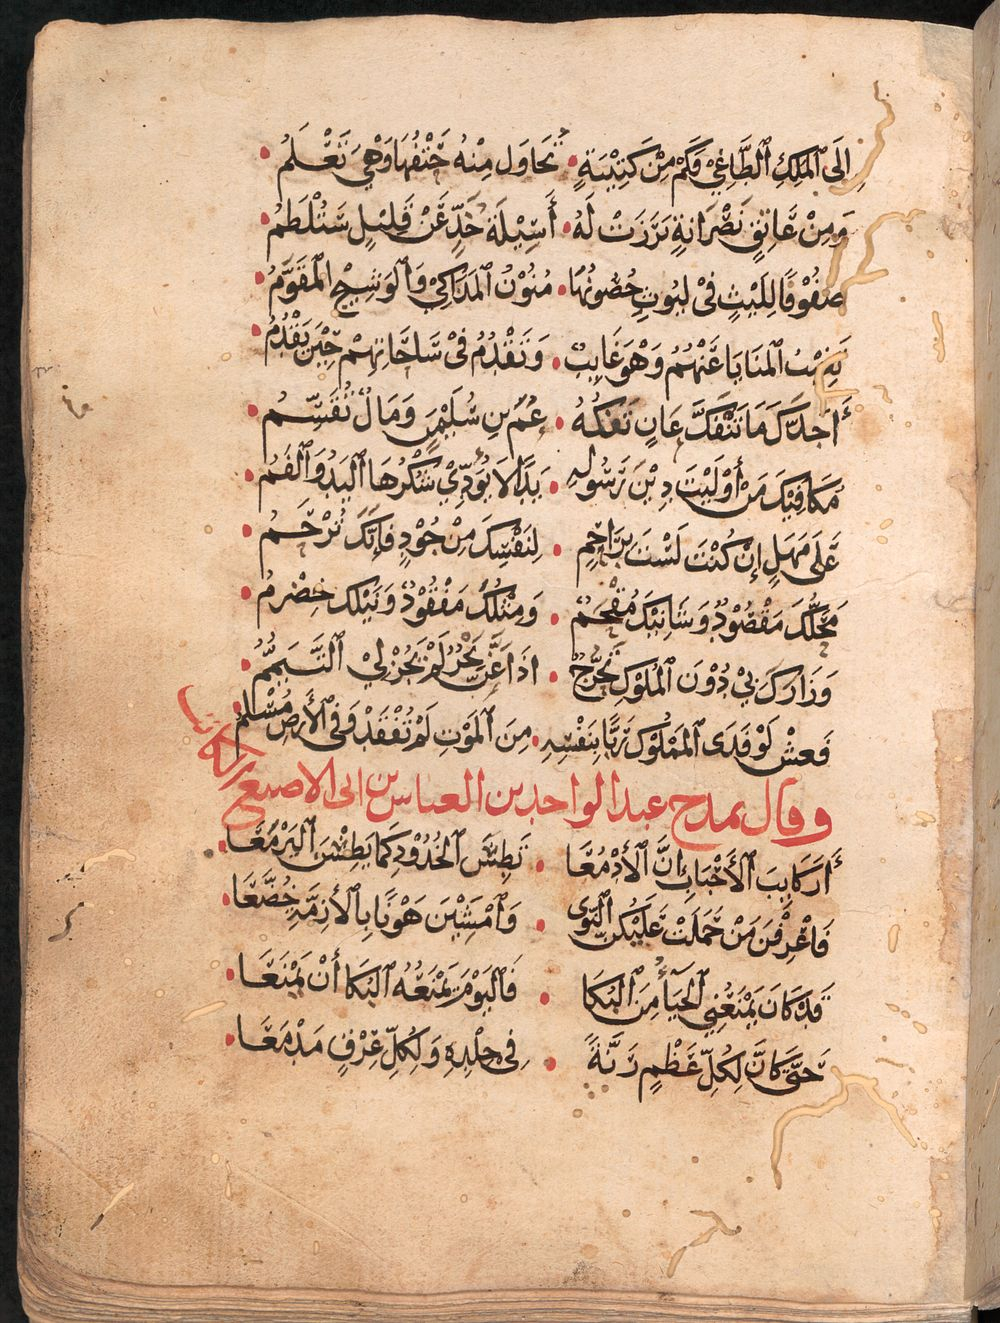 إِلَى ٱلْمَلِكِ ٱلطَّاغِيْ فَكَمْ مِنْ كَتِيْبَةٍ • تُحَاوِل مِنْهُ حَتْفَهَا وَهْيَ تَعْلَمُ •
وَمِنْ عَاتِقٍ نَصْرَانَةٍ بَرَزَتْ لَهُ • أَسِيْلَةِ خَدٍّ عَنْ قَلِيْلٍ سَتُلْطَمُ •
صُفُوْفًا لِلَيْثٍ فى لُيُوثٍ حُصُونُهَا • مُتُوْنُ ٱلْمَذَاكِيْ وَٱلْوَشِيْجُ المُقَوَّمُ •
تَغِيْبُ ٱلْمَنَايَا عَنْهُمُ وَهْوَ غَايِبٌ • وَتَقْدُمُ فىْ سَاحَاتِهِمْ حِيْنَ يَقْدُمُ •
أَجِدَّكَ مَا تَنْفَكُّ عَانٍ تَفُكُّهُ • عُمَ بْنِ سُلَيْمٰنٍ وَمَالٌ تُقَسِّمُ •
مُكَافِيْكَ مَنْ أَوْلَيْتَ دِيْنَ رَسُولِهِ • يَدًا لَا تُؤَدِّيْ شُكْرَهَا ٱلْيَدُ وَٱلْفَمُ •
عَلَى مَهَلٍ إِنْ كُنْتَ لَسْتَ بِرَاحِمٍ • لِنَفْسِكَ مِنْ جُوْدٍ فَإِنَّكَ تُرْحَمُ •
مَحَلُّكَ مَقْصُوْدٌ وَشَانِيْكَ مُفْحَمٌ • وَمِثْلُكَ مَفْقُوْدٌ وَنَيْلُكَ خِضْرِمُ •
وَزَارَكَ بِيْ دُوْنَ ٱلْمُلُوكِ تَحَرُّجٌ • اذَا عَنَّ بَحْرٌ لَمْ يَجُزْ لِيْ ٱلتَّيَمُّمُ •
فَعِشْ لَوْ فَدَى ٱلْمَمْلُوْكُ رَبًّا بِنَفْسِهِ • مِنَ ٱلْمَوْتِ لَمْ تُفْقَدْ وَفى ٱلْأَرْضِ مُسْلِمُ •
وقال يمدح عبد الواحد بن العباس بن ابى الاصبغ الكاتب
أَرَكَايِبَ ٱلْأَحْبَابِ إِنَّ ٱلْأَدْمُعَا • تَطِسُ ٱلْخُدُوْدَ كَمَا تَطِسْنَ ٱلْيَرْمَعَا •
فَاعْرِفْنَ مَنْ حَمَلَتْ عَلَيْكُنَّ ٱلنَّوَى • وَٱمْشِيْنَ هَوْنًا بِٱلْأَزِمَّةِ خُضَّعَا •
قَدْ كَانَ يَمْنَعُنِي ٱلْحَيَآءُ مِنَ ٱلْبُكَا • فَٱلْيَوْمَ يَمْنَعُهُ ٱلْبُكَا أَنْ يَمْنَعَا •
حَتَّى كَانَّ لِكُلِّ عَظْمٍ رَنَّةً • فِى جِلْدِهِ وَلِكُلِّ عِرْقٍ مَدْمَعَا •